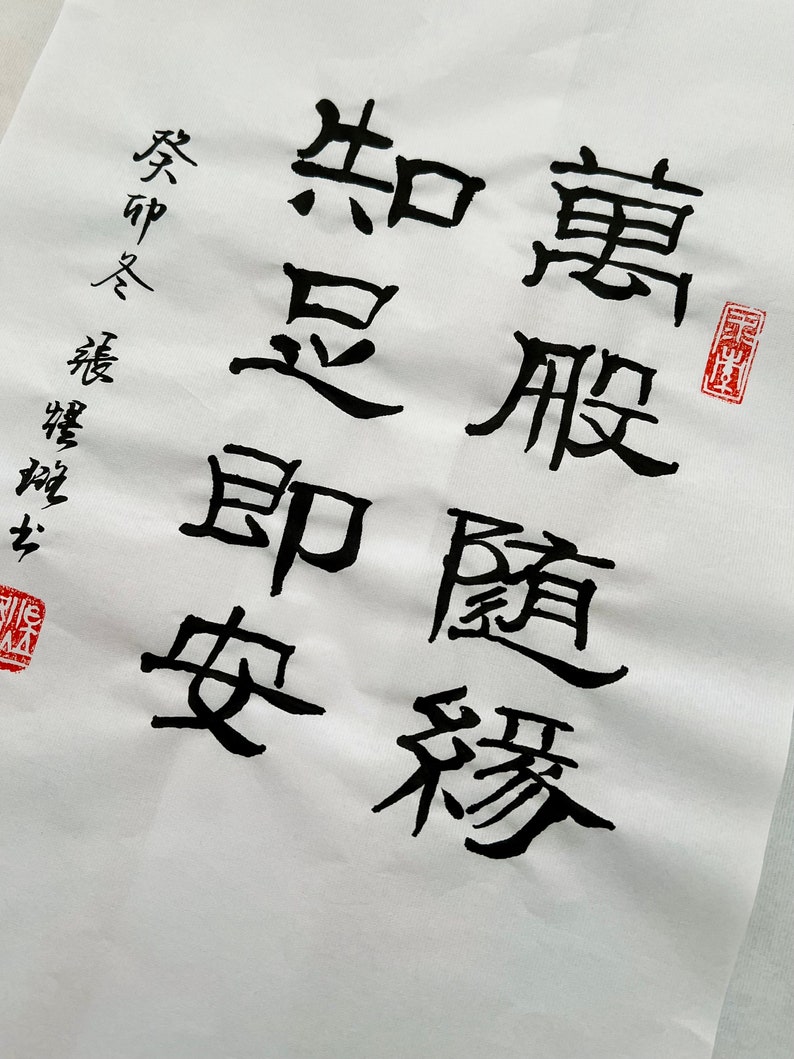 萬般随緣
知足即安
癸卯冬 張燿璐书